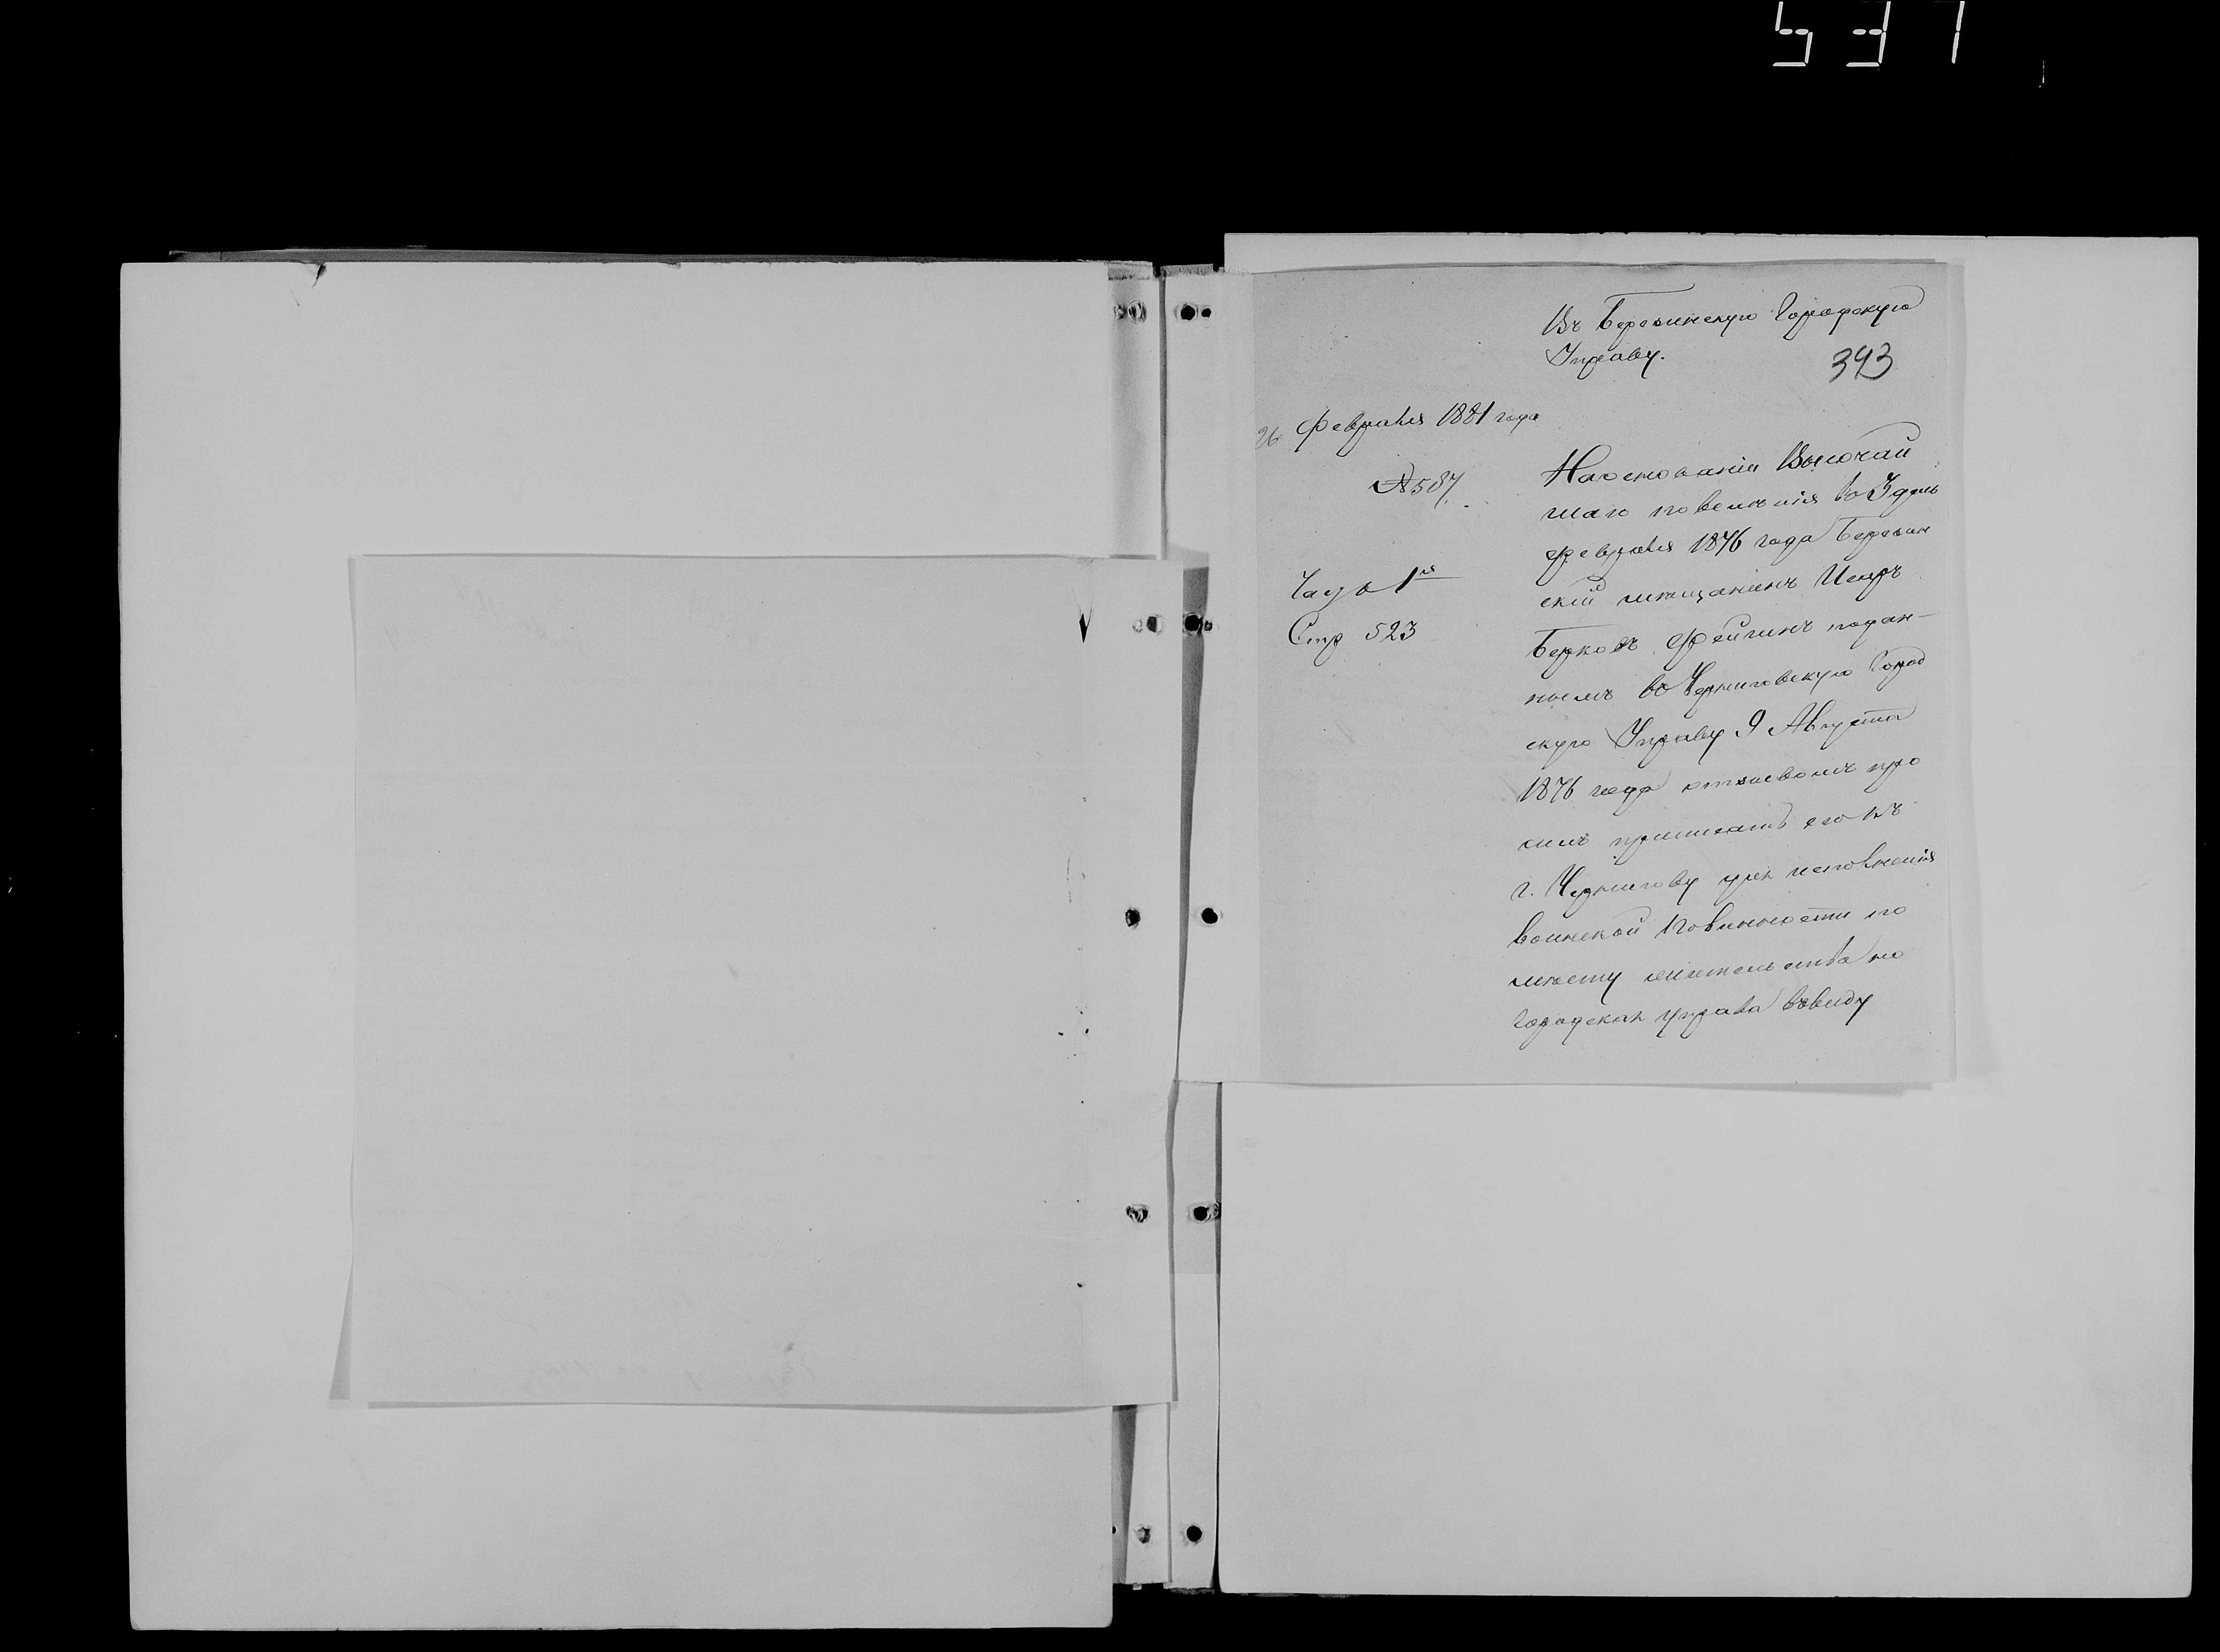 537
Въ Березинскую Городскую
Управу.
393
26 февраля 1881 года
№ 587.
Часть 1я
Стр 523
На основаніи Высочай
шаго повеленія въ 3 день
февраля 1876 года Березин
скій мѣщанинъ
Берковъ Фейгинъ подан-
нымъ въ Черниговскую Город
скую Управу 9 Августа
1876 года отзывомъ про
силъ приписать его къ
г. Чернигову для исполненія
воинской повинности по
мѣсту жительства но
городская управа ввиду